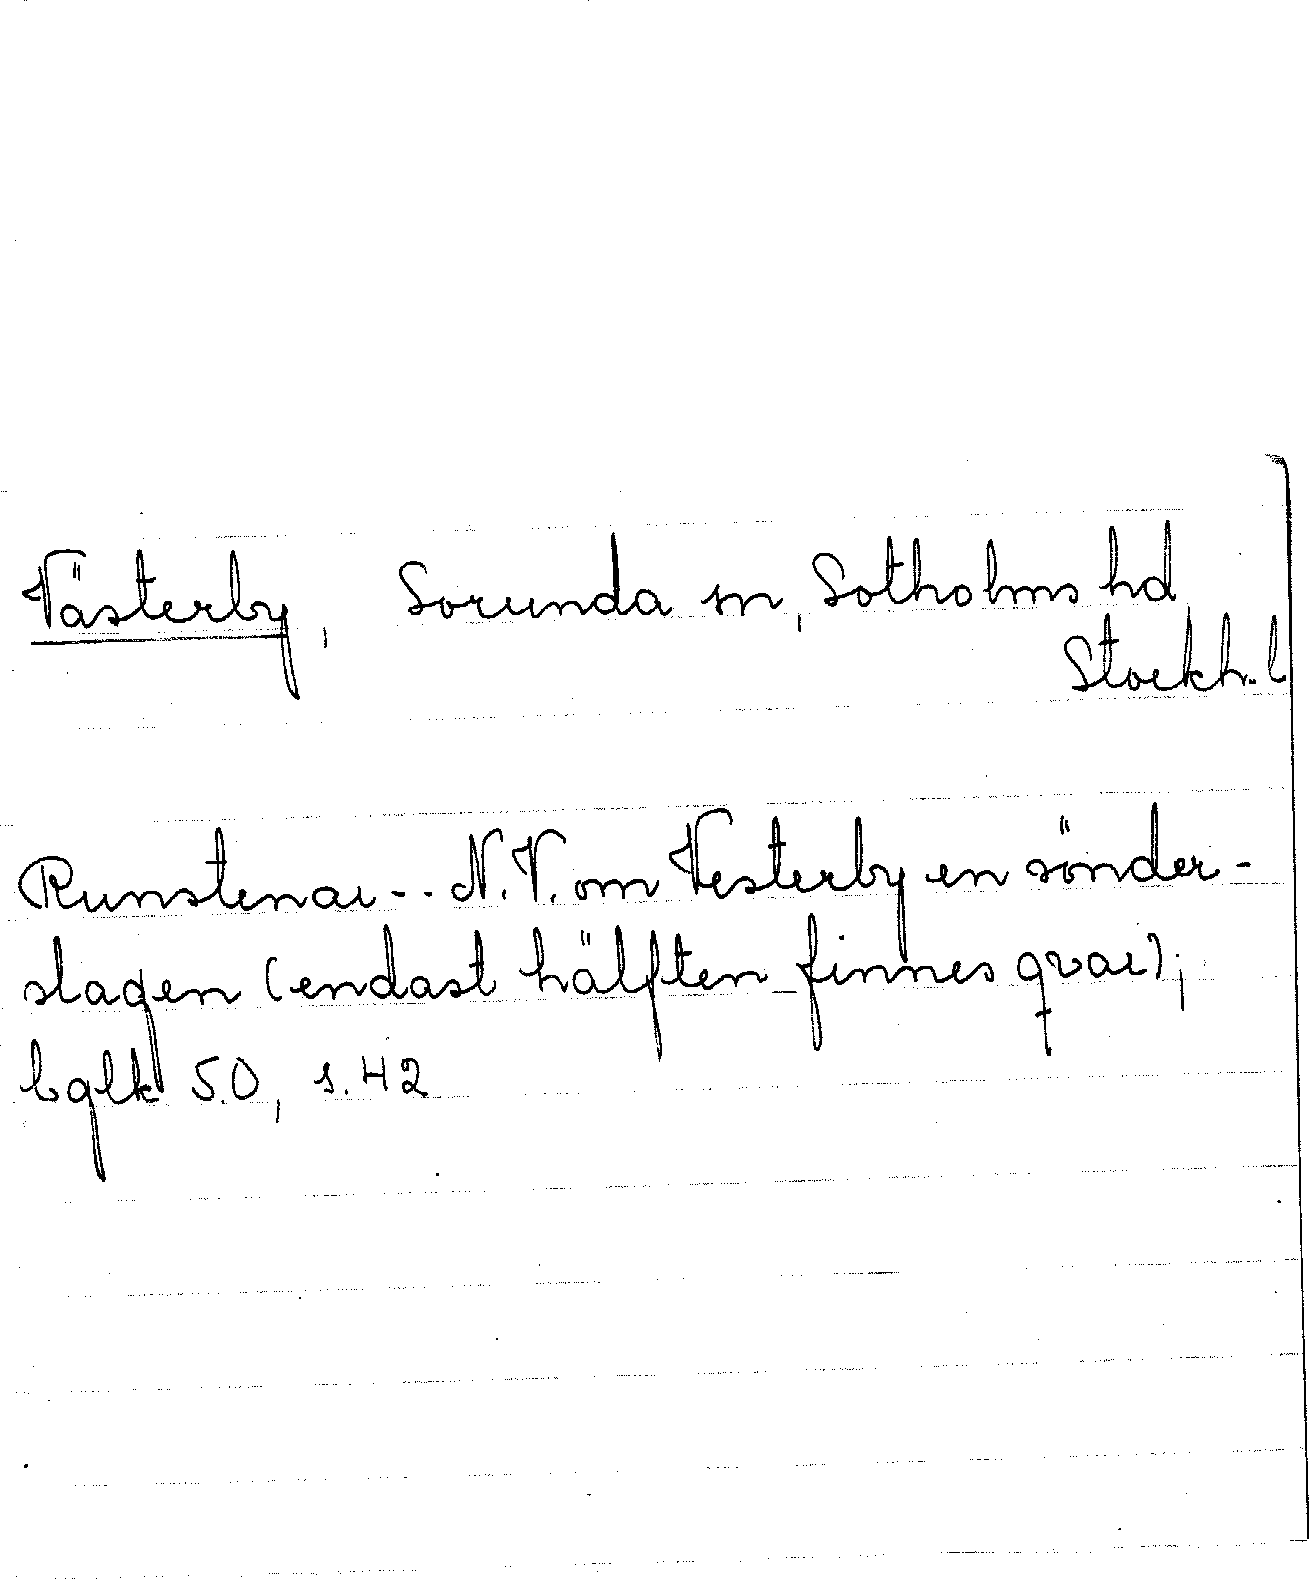 Västerby, Sorunda sn, Sotholms hd,
Stockh. l
Runstenar -- N.V. om Vesterby en sönder-
slagen (endast hälften finnes qvar);
bglk 50, s. 42